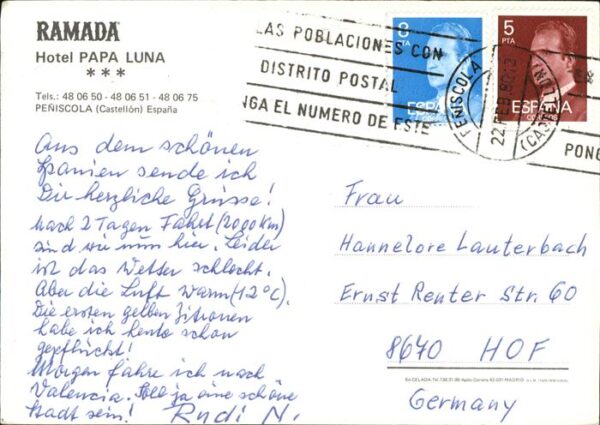 RAMADA
Hotel PAPA LUNA
* * *
Tels.: 48 06 50 - 48 06 51 - 48 06 75
PEÑISCOLA (Castellón) España
LAS POBLACIONES CON
DISTRITO POSTAL
NGA EL NUMERO DE ESTE
PONG
8
PTA
ESPAÑA
CORREOS
5
PTA
ESPAÑA
CORREOS
PEÑISCOLA
(CASTELLON)
Aus dem schönen
Spanien sende ich
Die herzliche Grüsse!
Nach 2 Tagen Fahrt (2000 Km)
sind wir nun hier. Leider
ist das Wetter schlecht.
Aber die Luft warm (12°C).
Die ersten gelben Zitronen
habe ich heute schon
gepflückt!
Morgen fahre ich nach
Valencia. Soll ja eine schöne
Stadt sein! Rudi N.
Frau
Hannelore Lauterbach
Ernst Reuter Str. 60
8670 HOF
Germany